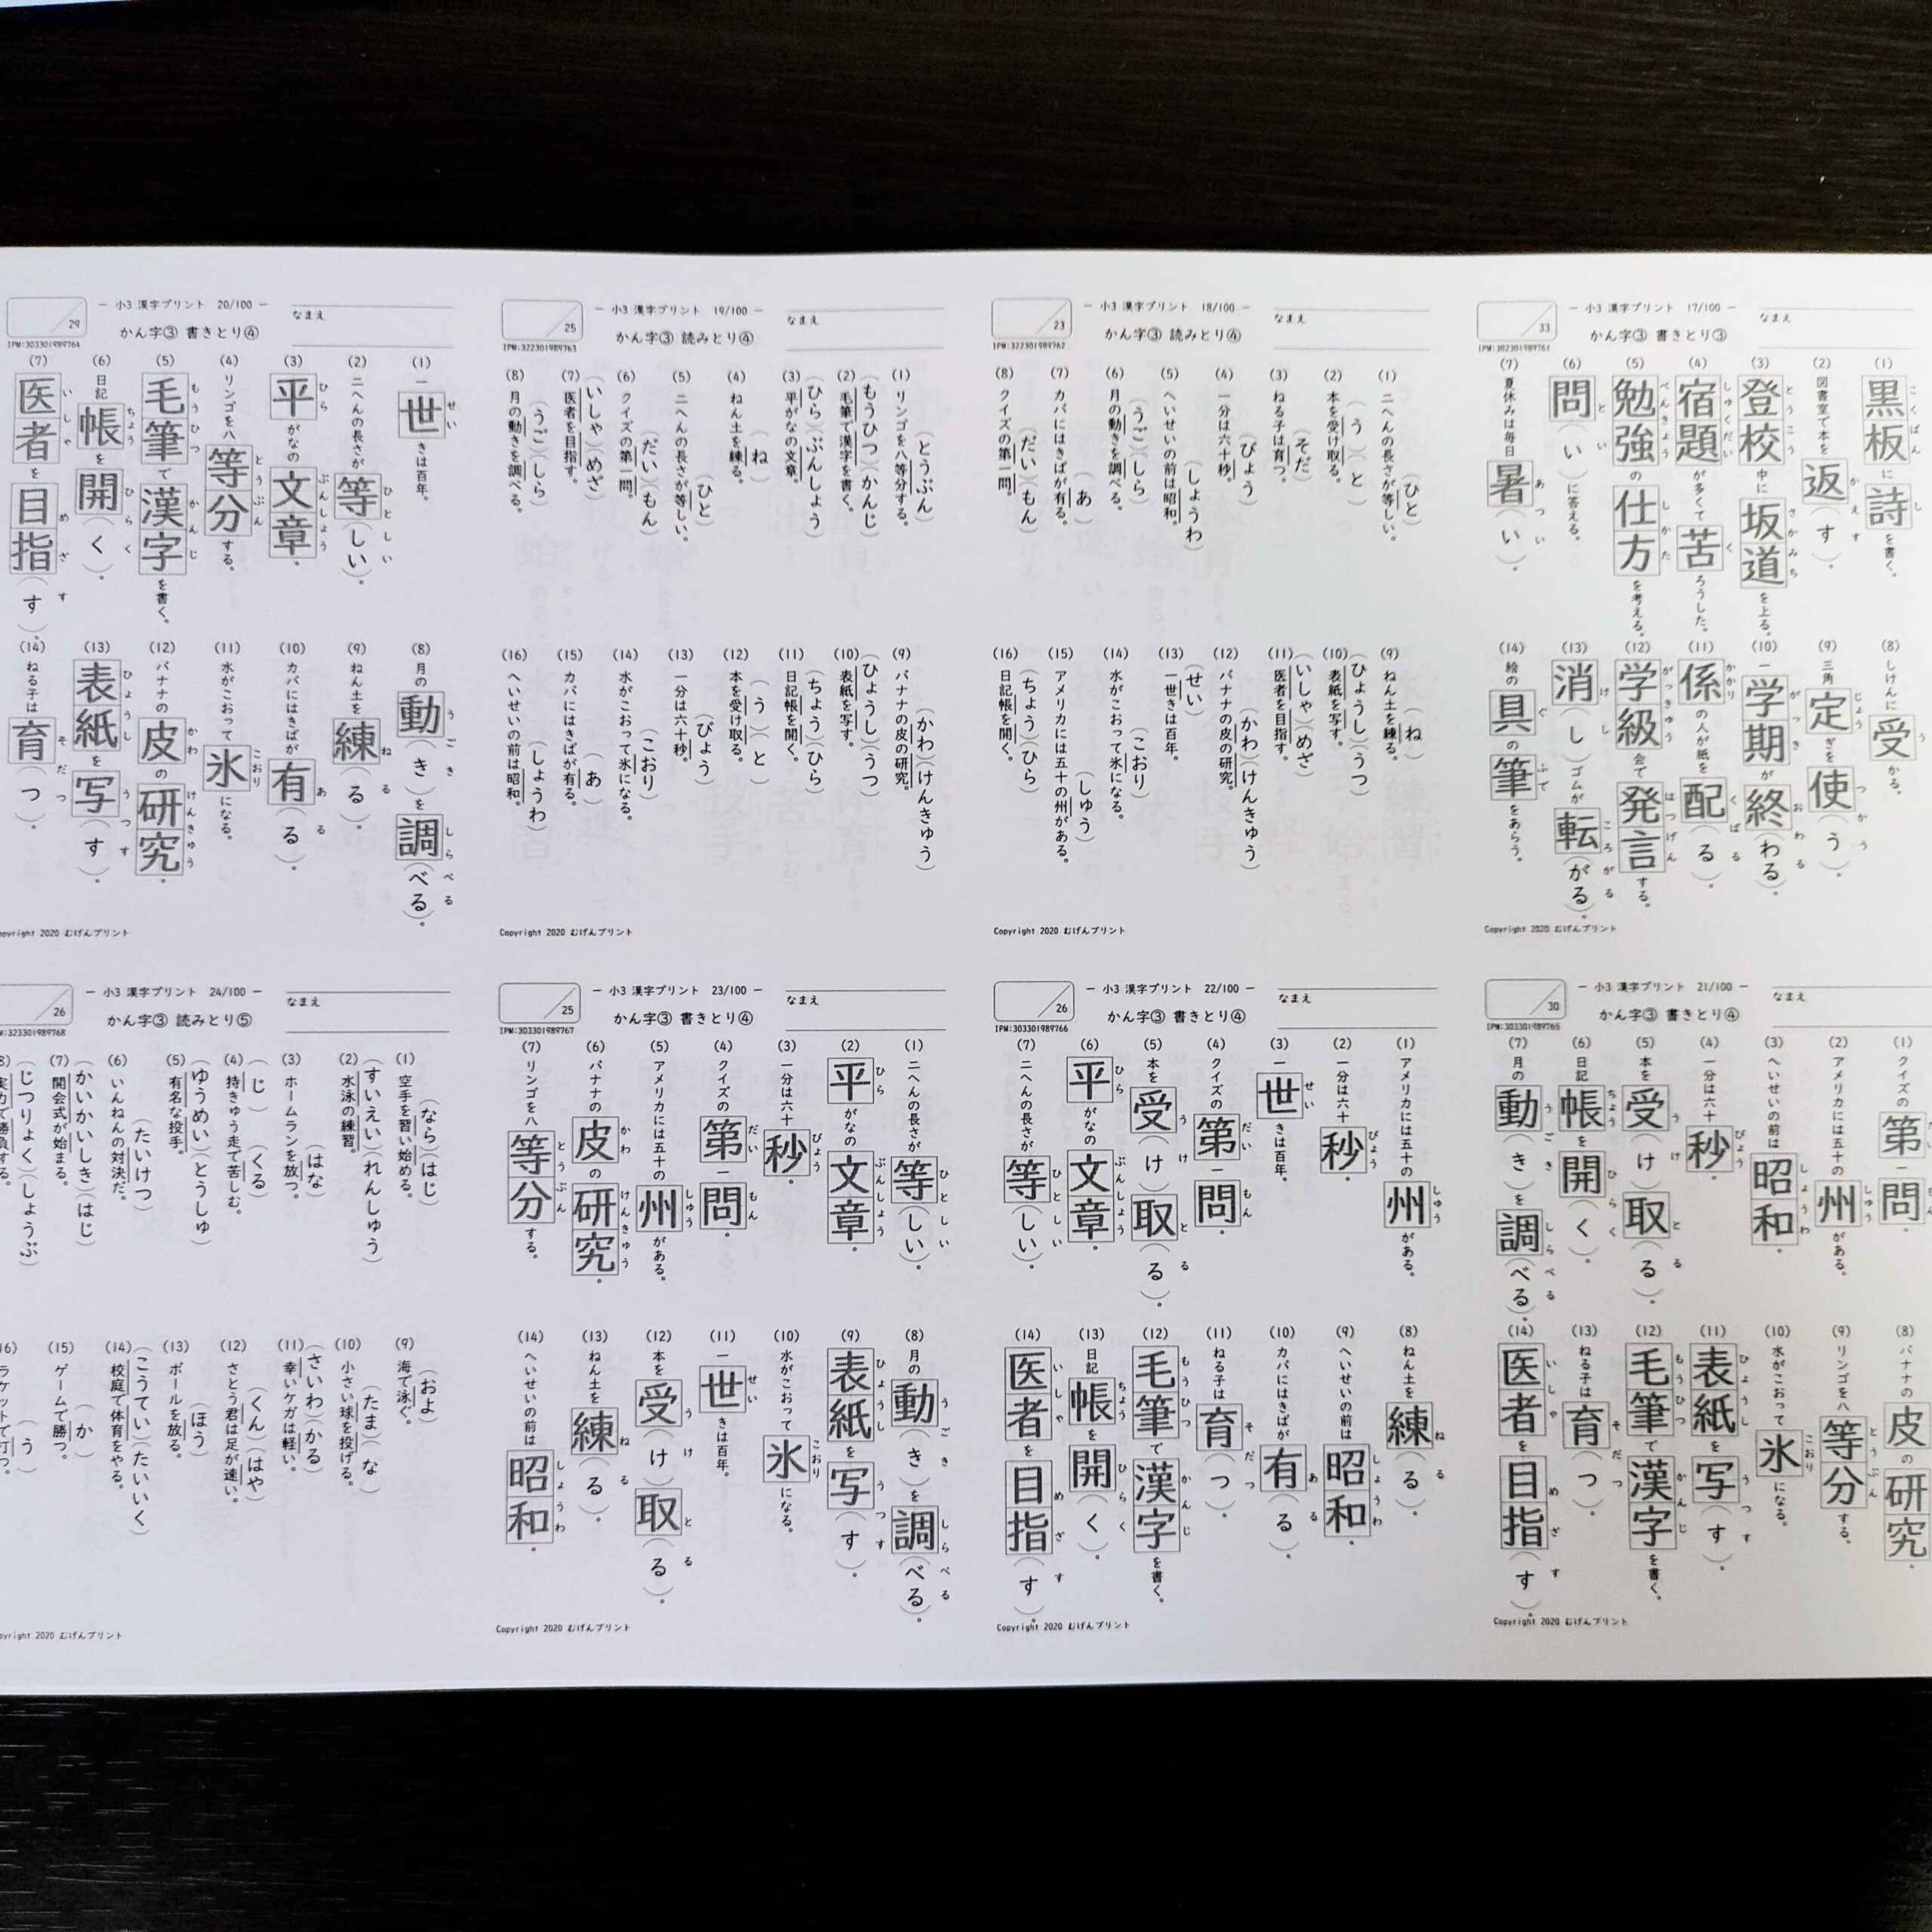 ― 小3 漢字プリント 17/100 ―
なまえ
かん字③ 書きとり③
33
IPM:302301989761
(1) 黒板に詩を書く。
(2) 図書室で本を返(す)。
(3) 登校中に坂道を上る。
(4) 宿題が多くて苦ろうした。
(5) 勉強の仕方を考える。
(6) 問(い)に答える。
(7) 夏休みは毎日暑(い)。
(8) しけんに受かる。
(9) 三角定ぎを使(う)。
(10) 一学期が終(わる)。
(11) 係の人が紙を配(る)。
(12) 学級会で発言する。
(13) 消(し)ゴムが転(がる)。
(14) 絵の具の筆をあらう。
Copyright 2020 むげんプリント
― 小3 漢字プリント 18/100 ―
なまえ
かん字③ 読みとり④
23
IPM:322301989762
(1) 二へんの長さが等しい。(ひと)
(2) 本を受け取る。(う)(と)
(3) ねる子は育つ。(そだ)
(4) 一分は六十秒。(びょう)
(5) へいせいの前は昭和。(しょうわ)
(6) 月の動きを調べる。(うご)(しら)
(7) カバにはきばが有る。(あ)
(8) クイズの第一問。(だい)(もん)
(9) ねん土を練る。(ね)
(10) 表紙を写す。(ひょうし)(うつ)
(11) 医者を目指す。(いしゃ)(めざ)
(12) バナナの皮の研究。(かわ)(けんきゅう)
(13) 一世きは百年。(せい)
(14) 水がこおって氷になる。(こおり)
(15) アメリカには五十の州がある。(しゅう)
(16) 日記帳を開く。(ちょう)(ひら)
Copyright 2020 むげんプリント
― 小3 漢字プリント 19/100 ―
なまえ
かん字③ 読みとり④
25
IPM:322301989763
(1) リンゴを八等分する。(とうぶん)
(2) 毛筆で漢字を書く。(もうひつ)(かんじ)
(3) 平がなの文章。(ひら)(ぶんしょう)
(4) ねん土を練る。(ね)
(5) 二へんの長さが等しい。(ひと)
(6) クイズの第一問。(だい)(もん)
(7) 医者を目指す。(いしゃ)(めざ)
(8) 月の動きを調べる。(うご)(しら)
(9) バナナの皮の研究。(かわ)(けんきゅう)
(10) 表紙を写す。(ひょうし)(うつ)
(11) 日記帳を開く。(ちょう)(ひら)
(12) 本を受け取る。(う)(と)
(13) 一分は六十秒。(びょう)
(14) 水がこおって氷になる。(こおり)
(15) カバにはきばが有る。(あ)
(16) へいせいの前は昭和。(しょうわ)
Copyright 2020 むげんプリント
― 小3 漢字プリント 20/100 ―
なまえ
かん字③ 書きとり④
29
IPM:303301989764
(1) 一世きは百年。
(2) 二へんの長さが等(しい)。
(3) 平がなの文章。
(4) リンゴを八等分する。
(5) 毛筆で漢字を書く。
(6) 日記帳を開(く)。
(7) 医者を目指(す)。
(8) 月の動(き)を調(べる)。
(9) ねん土を練(る)。
(10) カバにはきばが有(る)。
(11) 水がこおって氷になる。
(12) バナナの皮の研究。
(13) 表紙を写(す)。
(14) ねる子は育(つ)。
opyright 2020 むげんプリント
― 小3 漢字プリント 21/100 ―
なまえ
かん字③ 書きとり④
30
IPM:303301989765
(1) クイズの第一問。
(2) アメリカには五十の州がある。
(3) へいせいの前は昭和。
(4) 一分は六十秒。
(5) 本を受(け)取(る)。
(6) 日記帳を開(く)。
(7) 月の動(き)を調(べる)。
(8) バナナの皮の研究。
(9) リンゴを八等分する。
(10) 水がこおって氷になる。
(11) 表紙を写(す)。
(12) 毛筆で漢字を書く。
(13) ねる子は育(つ)。
(14) 医者を目指(す)。
Copyright 2020 むげんプリント
― 小3 漢字プリント 22/100 ―
なまえ
かん字③ 書きとり④
26
IPM:303301989766
(1) アメリカには五十の州がある。
(2) 一分は六十秒。
(3) 一世きは百年。
(4) クイズの第一問。
(5) 本を受(け)取(る)。
(6) 平がなの文章。
(7) 二へんの長さが等(しい)。
(8) ねん土を練(る)。
(9) へいせいの前は昭和。
(10) カバにはきばが有(る)。
(11) ねる子は育(つ)。
(12) 毛筆で漢字を書く。
(13) 日記帳を開(く)。
(14) 医者を目指(す)。
Copyright 2020 むげんプリント
― 小3 漢字プリント 23/100 ―
なまえ
かん字③ 書きとり④
25
IPM:303301989767
(1) 二へんの長さが等(しい)。
(2) 平がなの文章。
(3) 一分は六十秒。
(4) クイズの第一問。
(5) アメリカには五十の州がある。
(6) バナナの皮の研究。
(7) リンゴを八等分する。
(8) 月の動(き)を調(べる)。
(9) 表紙を写(す)。
(10) 水がこおって氷になる。
(11) 一世きは百年。
(12) 本を受(け)取(る)。
(13) ねん土を練(る)。
(14) へいせいの前は昭和。
Copyright 2020 むげんプリント
― 小3 漢字プリント 24/100 ―
なまえ
かん字③ 読みとり⑤
26
M:323301989768
(1) 空手を習い始める。(なら)(はじ)
(2) 水泳の練習。(すいえい)(れんしゅう)
(3) ホームランを放つ。(はな)
(4) 持きゅう走で苦しむ。(じ)(くる)
(5) 有名な投手。(ゆうめい)(とうしゅ)
(6) いんねんの対決だ。(たいけつ)
(7) 開会式が始まる。(かいかいしき)(はじ)
8) 実力で勝負する。(じつりょく)(しょうぶ)
(9) 海で泳ぐ。(およ)
(10) 小さい球を投げる。(たま)(な)
(11) 幸いケガは軽い。(さいわ)(かる)
(12) さとう君は足が速い。(くん)(はや)
(13) ボールを放る。(ほう)
(14) 校庭で体育をやる。(こうてい)(たいいく)
(15) ゲームで勝つ。(か)
16) ラケットで打つ。(う)
pyright 2020 むげんプリント